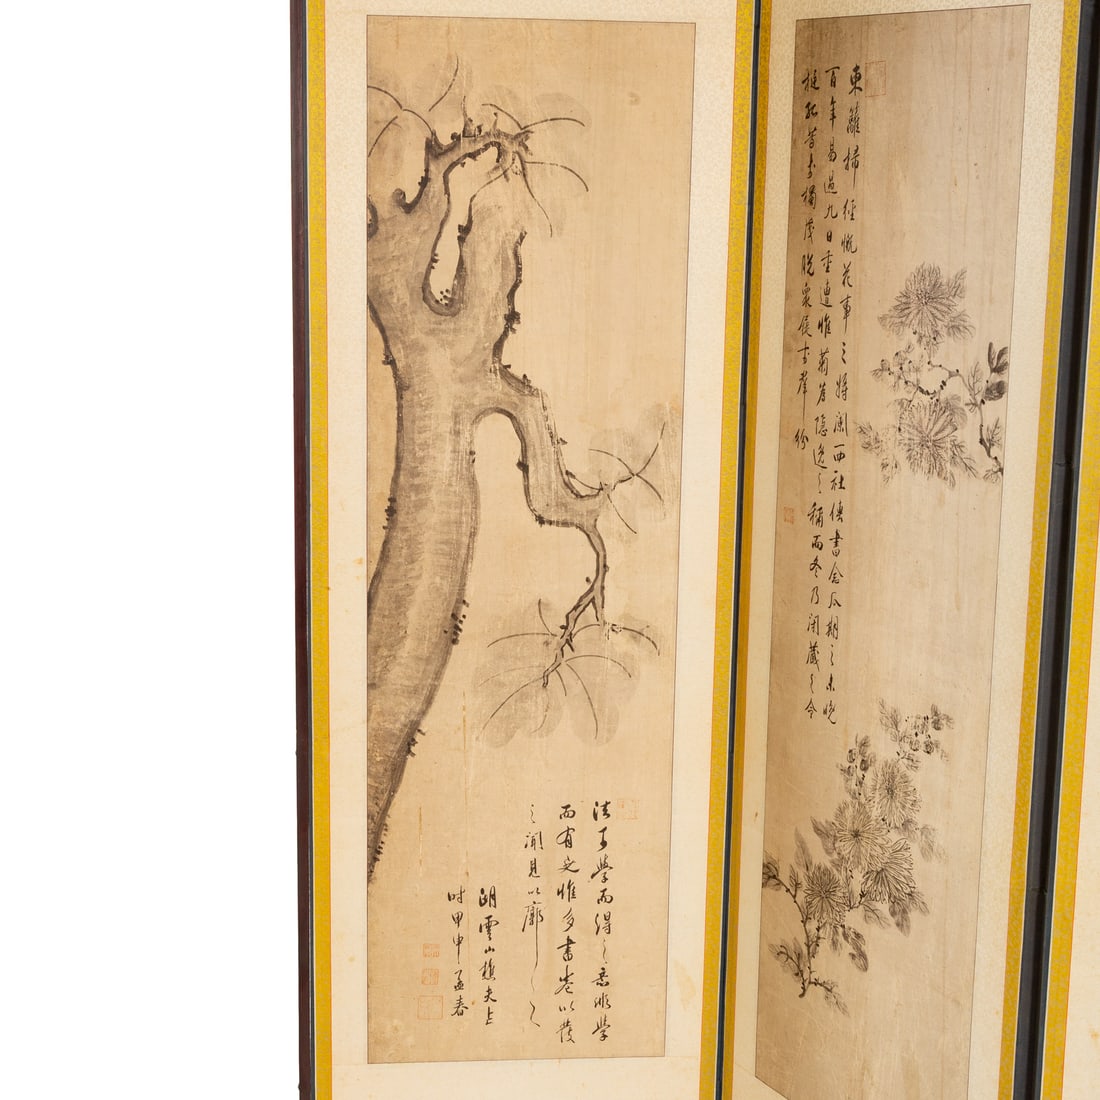 東籬掃徑慨花事之將闌西社傳書念瓜期之未晩
百年易過九日重遭惟菊有隱逸之稱而冬乃閉藏之令
挺孤芳於獨茂脫衆侯於群紛
法可學而得之意非學
而有之惟多書卷以發
之聞見以廓之
雲山樵夫
時甲申孟春